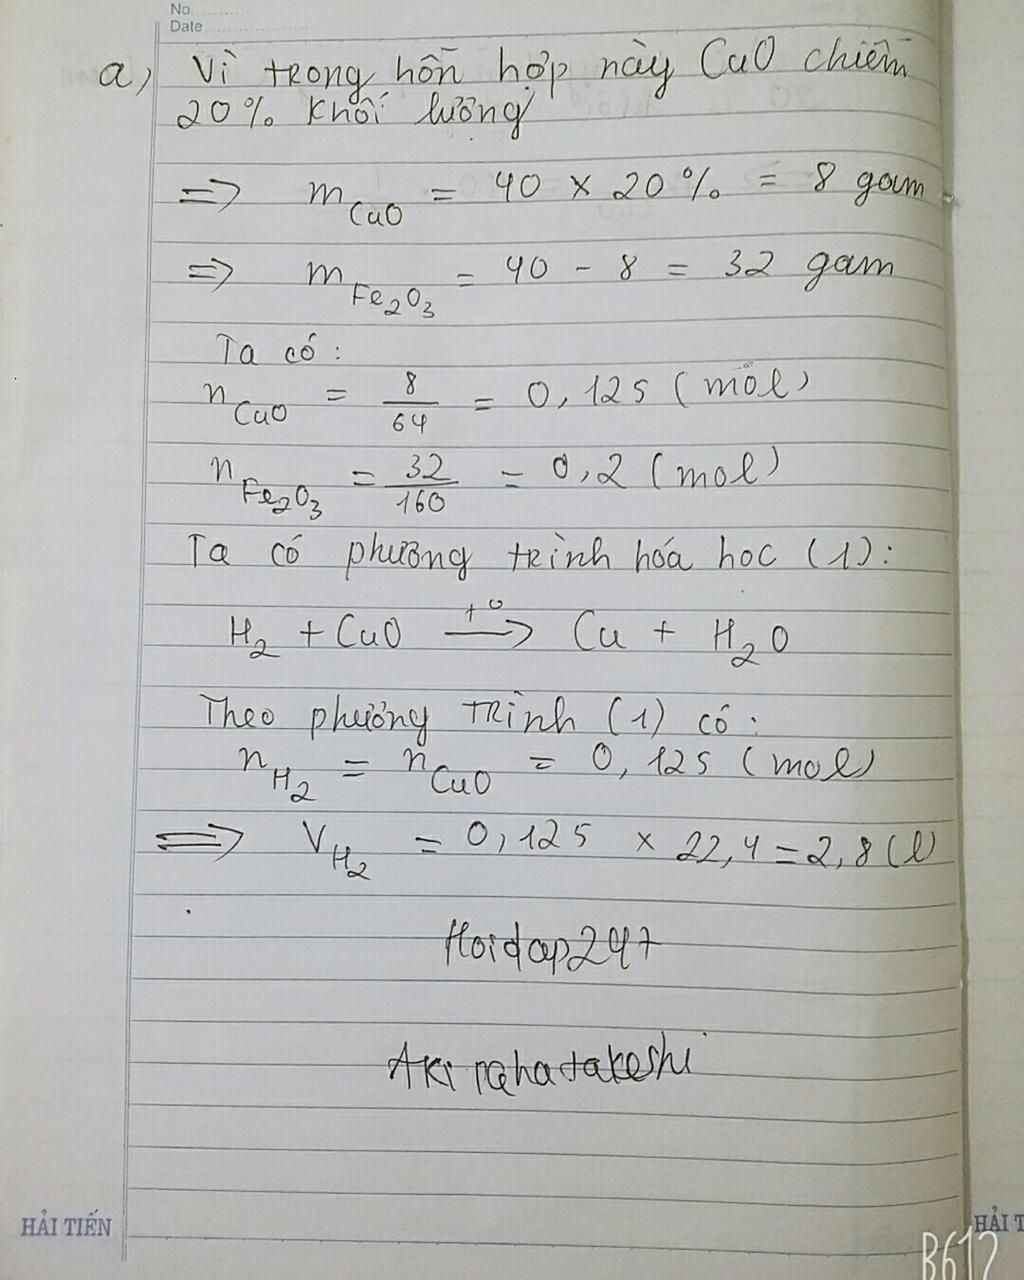 No.
Date
a) Vì trong hỗn hợp này CuO chiếm
20% khối lượng
=> m CuO = 40 x 20% = 8 gam
=> m Fe2O3 = 40 - 8 = 32 gam
Ta có:
n CuO = 8/64 = 0,125 (mol)
n Fe2O3 = 32/160 = 0,2 (mol)
Ta có phương trình hóa học (1):
H2 + CuO —t°→ Cu + H2O
Theo phương trình (1) có:
n H2 = n CuO = 0,125 (mol)
=> V H2 = 0,125 x 22,4 = 2,8 (l)
Hoidap247
Akirahatakeshi
HẢI TIẾN
HẢI T
B612